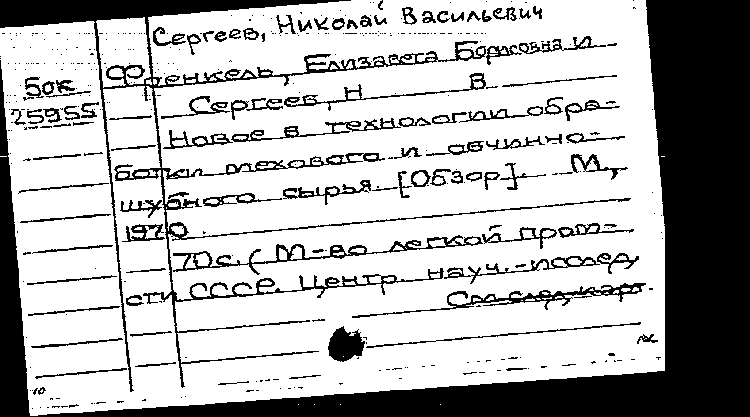 Сергеев, Николай Васильевич
Френкель, Елизавета Борисовна и
Бок
25955
Сергеев, Н В
Новое в технологии обра-
ботки мехового и овчинно-
шубного сырья. [Обзор]. М.,
1970.
70 с. (М-во легкой пром-
сти СССР. Центр. науч.-исслед.
См. след. карт.
10